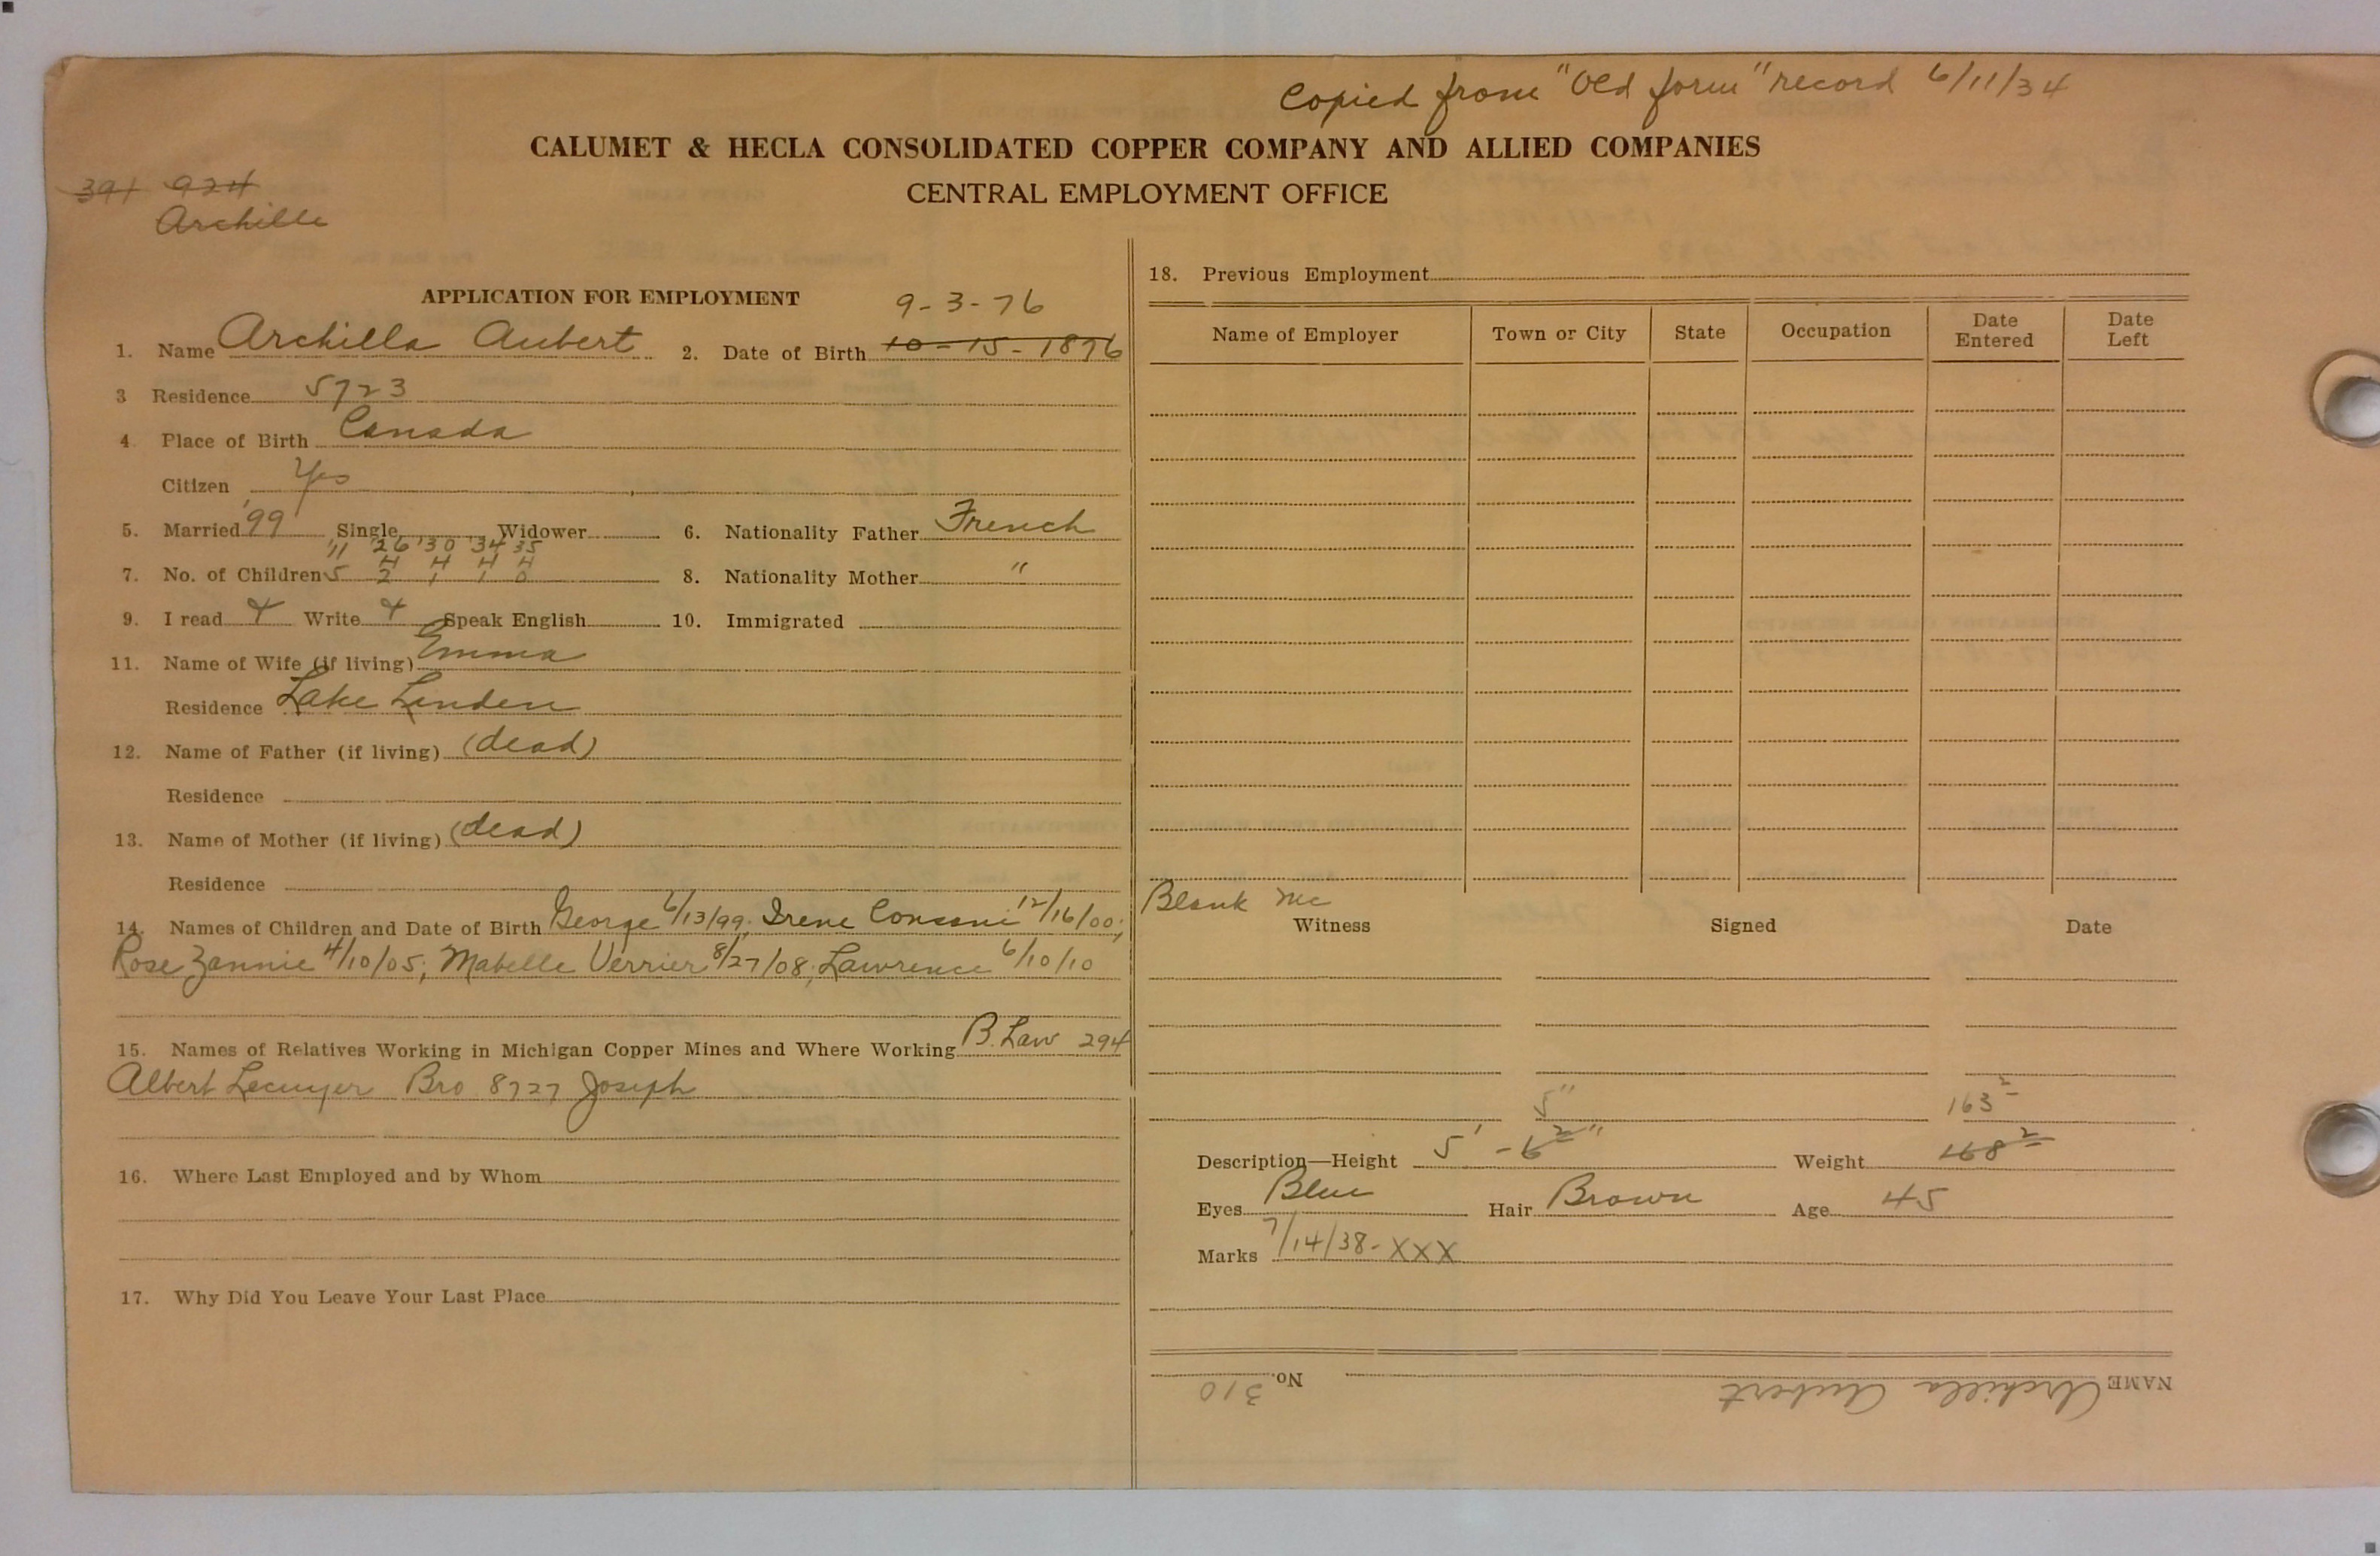 Copied from "Old form" record 6/11/34
CALUMET & HECLA CONSOLIDATED COPPER COMPANY AND ALLIED COMPANIES
CENTRAL EMPLOYMENT OFFICE
391 924
Archille
APPLICATION FOR EMPLOYMENT
9-3-76
1. Name Archilla Aubert 2. Date of Birth 10-15-1876
3 Residence 5723
4 Place of Birth Canada
Citizen Yes
5. Married '99 Single Widower 6. Nationality Father French
'11 '26 '30 '34 35
4 4 4 4
7. No. of Children 5 2 1 1 0 8. Nationality Mother "
9. I read Y Write Y Speak English 10. Immigrated
11. Name of Wife (if living) Emma
Residence Lake Linden
12. Name of Father (if living) (dead)
Residence
13. Name of Mother (if living) (dead)
Residence
14. Names of Children and Date of Birth George 6/13/99, Irene Consani 12/16/00;
Rose Zannie 4/10/05; Mabelle Verrier 8/27/08; Lawrence 6/10/10
15. Names of Relatives Working in Michigan Copper Mines and Where Working B. Law 294
Albert Lecuyer Bro 8727 Joseph
16. Where Last Employed and by Whom
17. Why Did You Leave Your Last Place
18. Previous Employment
Name of Employer Town or City State Occupation Date Entered Date Left
Blank Mc
Witness Signed Date
5" 163 2
Description—Height 5' - 6 2" Weight 168 2
Eyes Blue Hair Brown Age 45
Marks 7/14/38-XXX
NAME Archilla Aubert No. 310